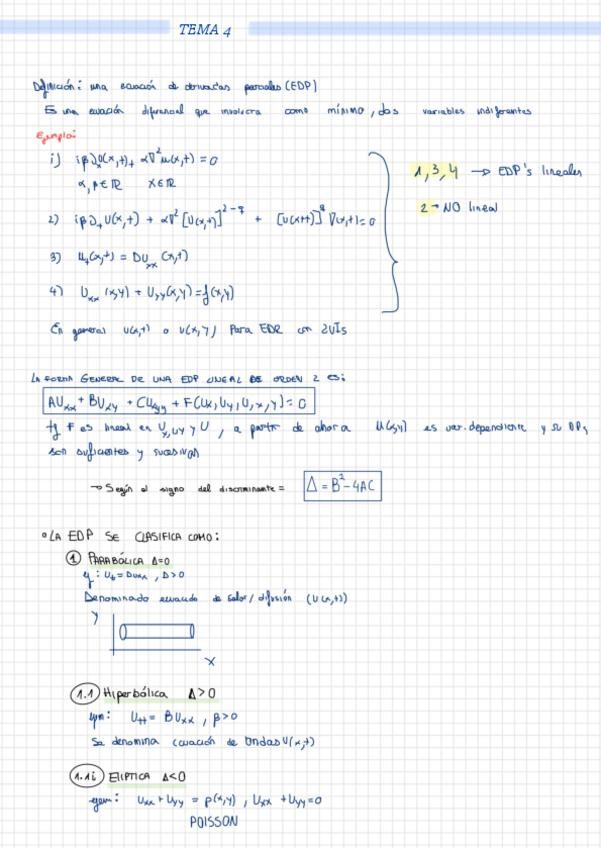 TEMA 4
Definición: una ecuación de derivadas parciales (EDP)
Es una ecuación diferencial que involucra como mínimo, dos variables indiferentes
Ejemplo:
i) iβ∂ₓU(x,t)+ α∇²u(x,t) = 0
α, β ∈ ℝ x ∈ ℝ
1, 3, 4 → EDP's lineales
2 → NO lineal
3) Uₜ(x,t) = DUₓₓ(x,t)
4) Uₓₓ(x,y) + Uyy(x,y) = f(x,y)
En general u(x,t) o u(x,y) Para EDP con 2VIs
LA FORMA GENERAL DE UNA EDP LINEAL DE ORDEN 2 es:
AUₓₓ + BUₓy + CUyy + F(Ux, Uy, U, x, y) = 0
F es lineal en Ux, Uy y U, a partir de ahora U(x,y) es var. dependiente y
son suficientes y
→ Según el signo del discriminante = Δ = B² - 4AC
• LA EDP SE CLASIFICA COMO:
① PARABÓLICA Δ=0
ej: Uₜ = DUxx, D>0
Denominado ecuación de calor/difusión (U(x,t))
Y
X
1.1 Hiperbólica Δ>0
ejm: Utt = BUxx, β>0
Se denomina ecuación de Ondas U(x,t)
1.1i ELIPTICA Δ<0
ejem: Uxx + Uyy = p(x,y), Uxx + Uyy = 0
POISSON